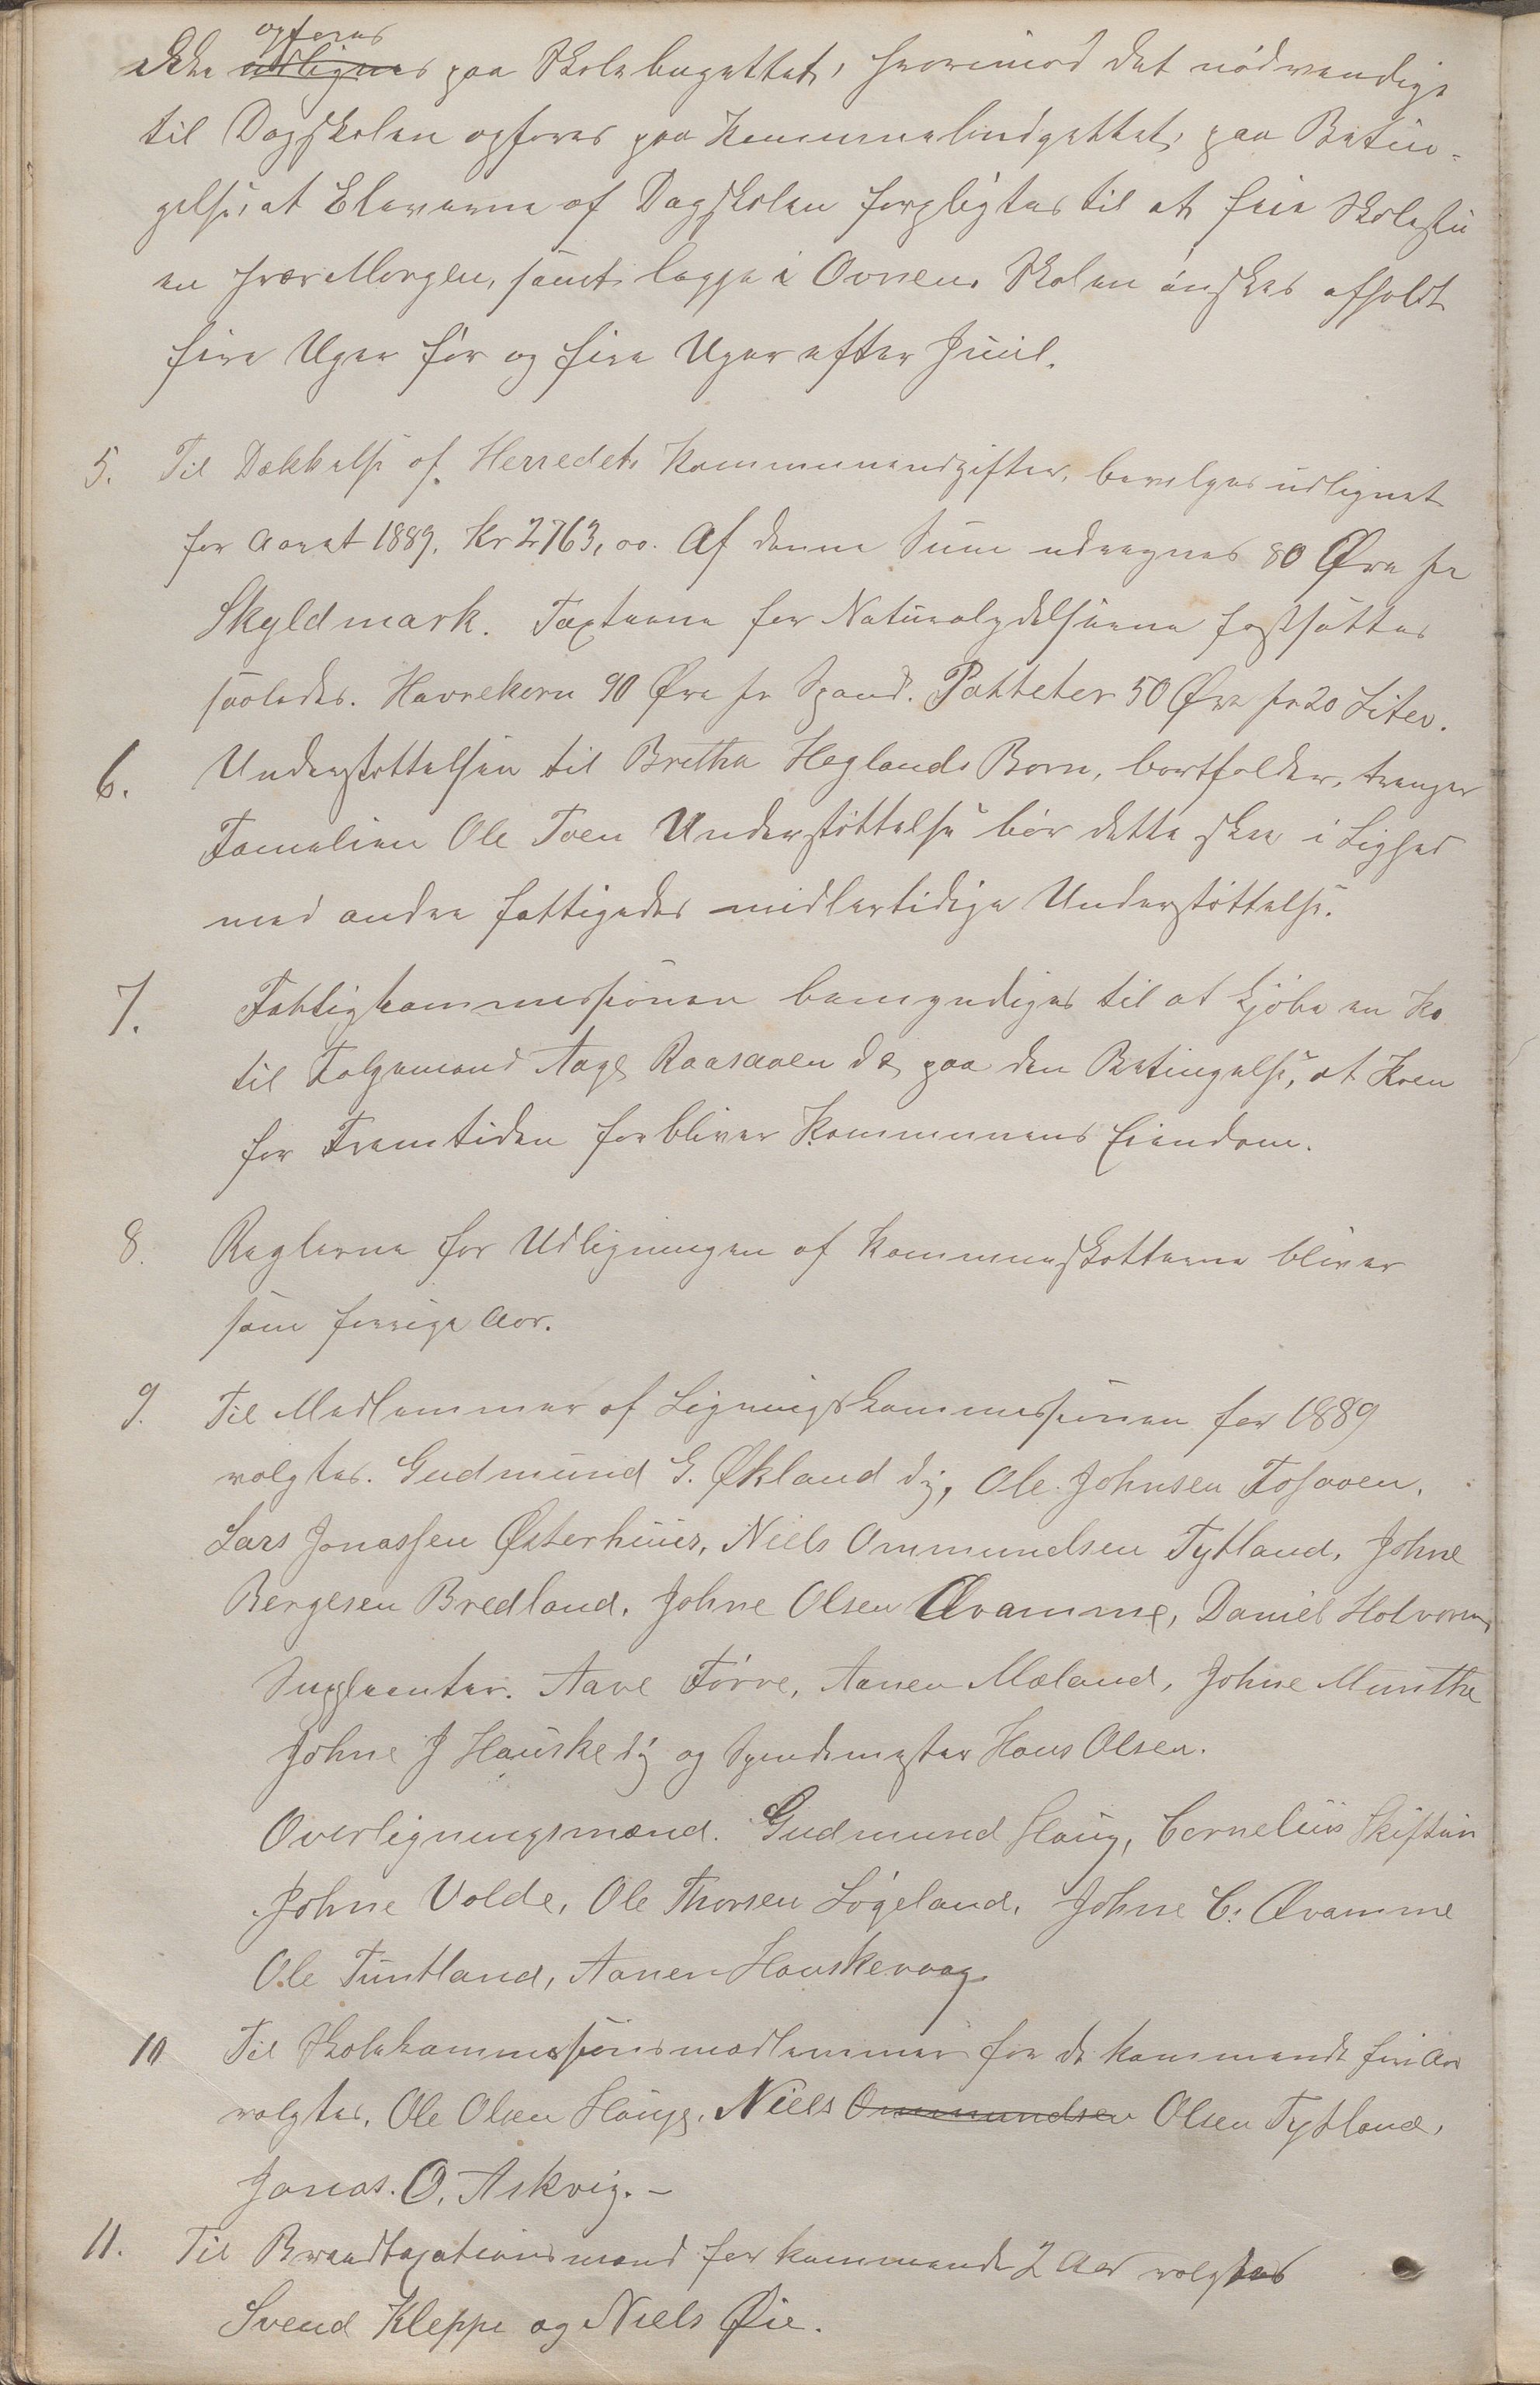 opføres
ikke udlignes paa Skolebugettet, hvorimod det nødvendige
til Dagskolen opføres paa Kommunebudgettet, paa Betin-
gelse, at Eleverne af Dagskolen forpligtes til at feie Skolestu
en hver Morgen, samt lægge i Ovnen. Skolen ønskes afholdt
fire Uger før og fire Uger efter Juul.
5. Til Dækkelse af Herredets Kommuneudgifter, bevilges udlignet
for Aaret 1889. Kr 2763,00. Af denne Sum udregnes 80 Øre pr
Skyldmark. Taxterne for Naturalydelserne fastsættes
saaledes. Havrekorn 90 Øre pr Spand. Potteter 50 Øre pr 20 Liter.
6. Understøttelsen til Bretha Heglands Børn, bortfalder, trænger
Famelien Ole Toen Understøttelse bør dette skee i Lighed
med andre fattigedes midlertidige Understøttelse.
7. Fattigkommessionen bemyndiges til at kjøbe en Ko
til Følgemand Aage Raasaaen d.æ. paa den Betingelse, at Koen
for Fremtiden forbliver Kommunens Eiendom.
8. Reglerne for Udligningen af Kommuneskatterne bliver
som forrige Aar.
9. Til Medlemmer af Ligningskommessionen for 1889
valgtes. Gudmund G. Økland d.y, Ole Johnsen Fosaaen,
Lars Jonassen Østerhuus, Niels Ommundsen Tytland, Johne
Bergesen Bredland, Johne Olsen Qvamme, Daniel Helvorn
Suppleanter. Aave Tørve, Aanen Meland, Johne Munthe
Johne J Hauske d.y og Svendemester Hans Olsen.
Overligningsmænd. Gudmund Haug, Cornelius Skiftun
Johne Volde, Ole Thorsen Løgeland, Johne C. Qvamme
Ole Tuntland, Aanen Hauskevaag
10 Til Skolekommessionsmedlemmer for de kommende fire Aar
valgtes, Ole Olsen Hauge, Niels Ommundsen Olsen Tytland,
Jonas. O. Askvig. –
11. Til Brandtaxationsmænd for kommende 2 Aar valgtes
Svend Kleppe og Niels Øie.